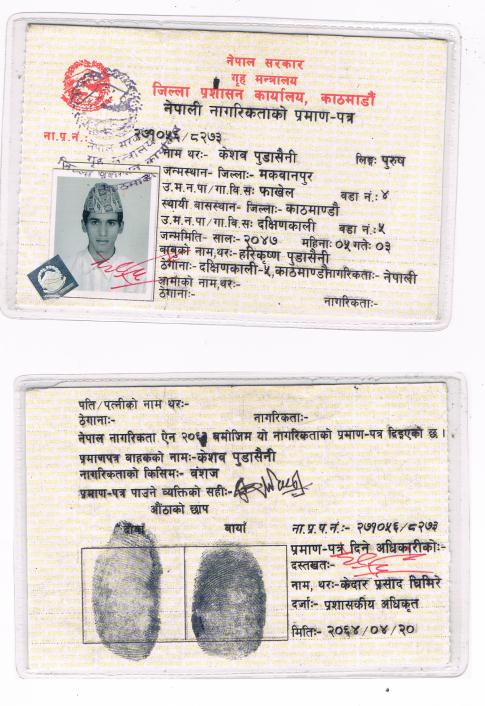 नेपाल सरकार
गृह मन्त्रालय
जिल्ला प्रशासन कार्यालय, काठमाडौं
नेपाली नागरिकताको प्रमाण-पत्र
ना.प्र.नं.:- २७१०५६/८२७३
नाम थर:- केशव पुडासैनी लिङ्ग: पुरुष
जन्मस्थान:- जिल्ला:- मकवानपुर
उ.म.न.पा/गा.वि.स: फाखेल वडा नं.: ४
स्थायी बासस्थान- जिल्ला:- काठमाण्डौ
उ.म.न.पा/गा.वि.स: दक्षिणकाली वडा नं.: ५
जन्ममिति- साल:- २०४७ महिना: ०५ गते: ०३
बाबुको नाम,थर:- हरिकृष्ण पुडासैनी
ठेगाना:- दक्षिणकाली-५, काठमाण्डौ नागरिकता:- नेपाली
आमाको नाम,थर:-
ठेगाना:- नागरिकता:-
पति/पत्नीको नाम थर:-
ठेगाना:- नागरिकता:-
नेपाल नागरिकता ऐन २०६३ बमोजिम यो नागरिकताको प्रमाण-पत्र दिइएको छ।
प्रमाणपत्र बाहकको नाम:- केशव पुडासैनी
नागरिकताको किसिम:- वंशज
प्रमाण-पत्र पाउने व्यक्तिको सही:-
औंठाको छाप
दायाँ बायाँ
ना.प्र.प.नं.:- २७१०५६/८२७३
प्रमाण-पत्र दिने अधिकारीको:-
दस्तखत:-
नाम, थर:- केदार प्रसाद घिमिरे
दर्जा:- प्रशासकीय अधिकृत
मिति:- २०६४/०४/२०